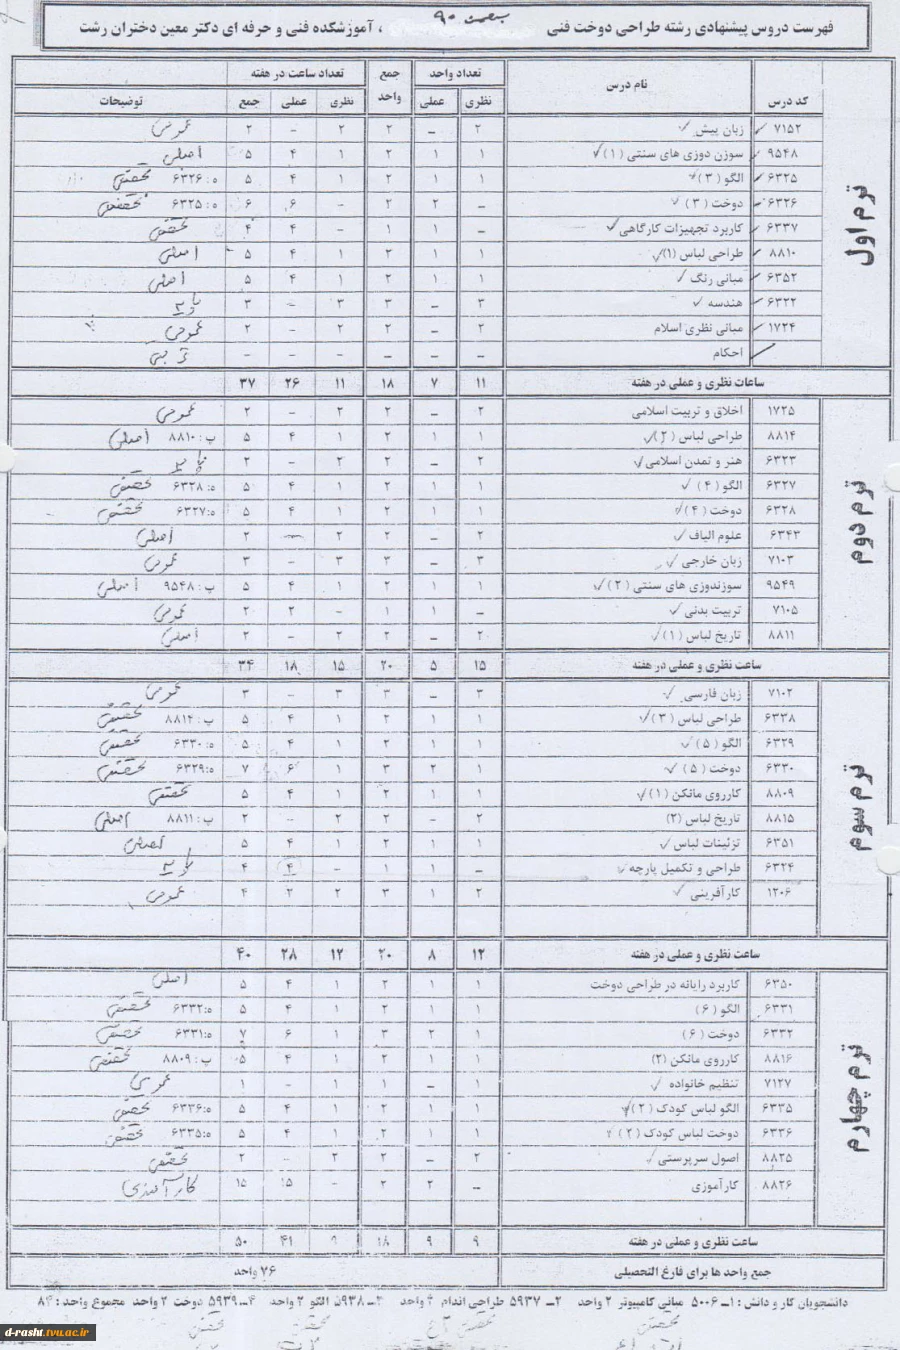 بهمن ۹۰
فهرست دروس پیشنهادی رشته طراحی دوخت فنی ، آموزشکده فنی و حرفه ای دکتر معین دختران رشت
کد درس نام درس تعداد واحد جمع واحد تعداد ساعت در هفته توضیحات
نظری عملی نظری عملی جمع
ترم اول
۷۱۵۲ زبان پیش ۲ – ۲ ۲ – ۲ عمومی
۹۵۴۸ سوزن دوزی های سنتی (۱) ۱ ۱ ۲ ۱ ۴ ۵ اصلی
۶۳۲۵ الگو (۳) ۱ ۱ ۲ ۱ ۴ ۵ ه: ۶۳۲۶ تخصصی
۶۳۲۶ دوخت (۳) – ۲ ۲ – ۶ ۶ ه: ۶۳۲۵ تخصصی
۶۳۳۷ کاربرد تجهیزات کارگاهی – ۱ ۱ – ۴ ۴ تخصصی
۸۸۱۰ طراحی لباس (۱) ۱ ۱ ۲ ۱ ۴ ۵ اصلی
۶۳۵۲ مبانی رنگ ۱ ۱ ۲ ۱ ۴ ۵ اصلی
۶۳۲۲ هندسه ۳ – ۳ ۳ – ۳ پایه
۱۷۲۴ مبانی نظری اسلام ۲ – ۲ ۲ – ۲ عمومی
احکام – – – – – –
ساعات نظری و عملی در هفته ۱۱ ۷ ۱۸ ۱۱ ۲۶ ۳۷
ترم دوم
۱۷۲۵ اخلاق و تربیت اسلامی ۲ – ۲ ۲ – ۲ عمومی
۸۸۱۴ طراحی لباس (۲) ۱ ۱ ۲ ۱ ۴ ۵ پ: ۸۸۱۰ اصلی
۶۳۲۳ هنر و تمدن اسلامی ۲ – ۲ ۲ – ۲ پایه
۶۳۲۷ الگو (۴) ۱ ۱ ۲ ۱ ۴ ۵ ه: ۶۳۲۸ تخصصی
۶۳۲۸ دوخت (۴) ۱ ۱ ۲ ۱ ۴ ۵ ه: ۶۳۲۷ تخصصی
۶۳۴۳ علوم الیاف ۲ – ۲ ۲ – ۲ اصلی
۷۱۰۳ زبان خارجی ۳ – ۳ ۳ – ۳ عمومی
۹۵۴۹ سوزندوزی های سنتی (۲) ۱ ۱ ۲ ۱ ۴ ۵ پ: ۹۵۴۸ اصلی
۷۱۰۵ تربیت بدنی – ۱ ۱ – ۲ ۲ عمومی
۸۸۱۱ تاریخ لباس (۱) ۲ – ۲ ۲ – ۲ اصلی
ساعت نظری و عملی در هفته ۱۵ ۵ ۲۰ ۱۵ ۱۸ ۳۴
ترم سوم
۷۱۰۲ زبان فارسی ۳ – ۳ ۳ – ۳ عمومی
۶۳۳۸ طراحی لباس (۳) ۱ ۱ ۲ ۱ ۴ ۵ پ: ۸۸۱۴ تخصصی
۶۳۲۹ الگو (۵) ۱ ۱ ۲ ۱ ۴ ۵ ه: ۶۳۳۰ تخصصی
۶۳۳۰ دوخت (۵) ۱ ۲ ۳ ۱ ۶ ۷ ه: ۶۳۲۹ تخصصی
۸۸۰۹ کارروی مانکن (۱) ۱ ۱ ۲ ۱ ۴ ۵ تخصصی
۸۸۱۵ تاریخ لباس (۲) ۲ – ۲ ۲ – ۲ پ: ۸۸۱۱ اصلی
۶۳۵۱ تزئینات لباس ۱ ۱ ۲ ۱ ۴ ۵ اصلی
۶۳۲۴ طراحی و تکمیل پارچه – ۱ ۱ – ۴ ۴ پایه
۱۲۰۶ کارآفرینی ۲ ۱ ۳ ۲ ۲ ۴ عمومی
ساعت نظری و عملی در هفته ۱۲ ۸ ۲۰ ۱۲ ۲۸ ۴۰
ترم چهارم
۶۳۵۰ کاربرد رایانه در طراحی دوخت ۱ ۱ ۲ ۱ ۴ ۵ اصلی
۶۳۳۱ الگو (۶) ۱ ۱ ۲ ۱ ۴ ۵ ه: ۶۳۳۲ تخصصی
۶۳۳۲ دوخت (۶) ۱ ۲ ۳ ۱ ۶ ۷ ه: ۶۳۳۱ تخصصی
۸۸۱۶ کارروی مانکن (۲) ۱ ۱ ۲ ۱ ۴ ۵ پ: ۸۸۰۹ تخصصی
۷۱۲۷ تنظیم خانواده ۱ – ۱ ۱ – ۱ عمومی
۶۳۳۵ الگو لباس کودک (۲) ۱ ۱ ۲ ۱ ۴ ۵ ه: ۶۳۳۶ تخصصی
۶۳۳۶ دوخت لباس کودک (۲) ۱ ۱ ۲ ۱ ۴ ۵ ه: ۶۳۳۵ تخصصی
۸۸۲۵ اصول سرپرستی ۲ – ۲ ۲ – ۲ تخصصی
۸۸۲۶ کارآموزی – ۲ ۲ – ۱۵ ۱۵ کارآموزی
ساعت نظری و عملی در هفته ۹ ۹ ۱۸ ۹ ۴۱ ۵۰
جمع واحد ها برای فارغ التحصیلی ۷۶ واحد
دانشجویان کار و دانش : ۱ـ ۵۰۰۶ مبانی کامپیوتر ۲ واحد ۲ـ ۵۹۳۷ طراحی اندام ۲ واحد ۳ـ ۵۹۳۸ الگو ۲ واحد ۴ـ ۵۹۳۹ دوخت ۲ واحد مجموع واحد : ۸۴
d-rasht.tvu.ac.ir